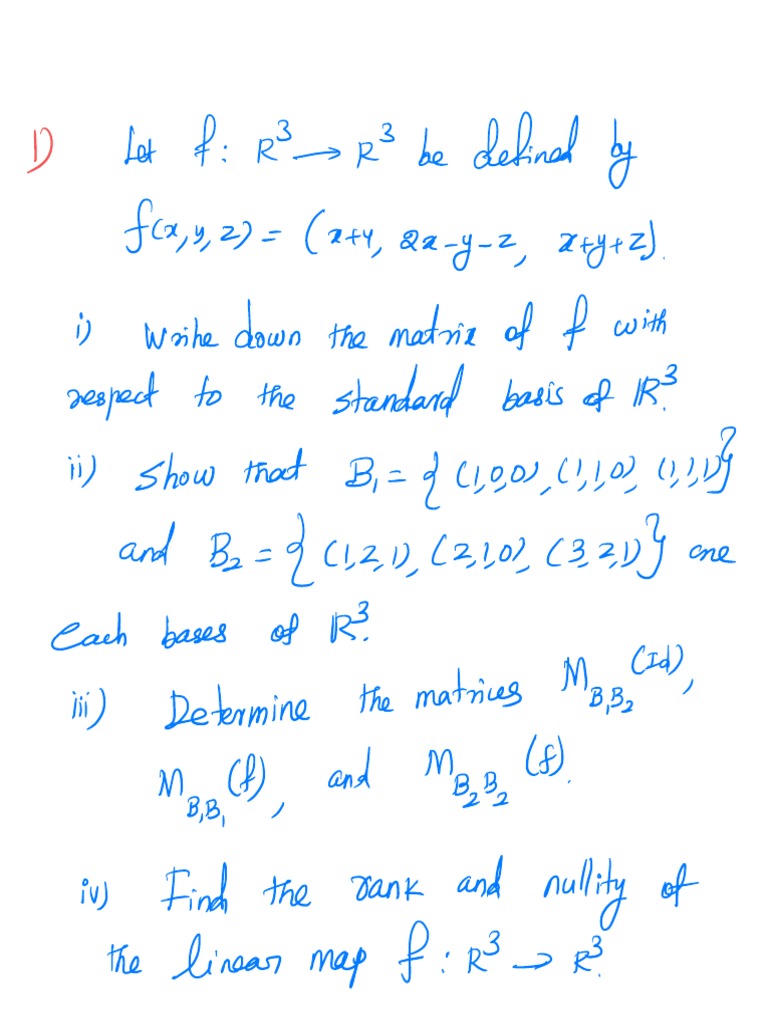 1) Let f: R³ → R³ be defined by
f(x, y, z) = (x+y, 2x-y-z, x+y+z).
i) Write down the matrix of f with
respect to the standard basis of ℝ³.
ii) Show that B₁ = {(1,0,0), (1,1,0), (1,1,1)}
and B₂ = {(1,2,1), (2,1,0), (3,2,1)} are
each bases of ℝ³.
iii) Determine the matrices M_{B₁B₂}(Id),
M_{B₁B₁}(f), and M_{B₂B₂}(f).
iv) Find the rank and nullity of
the linear map f: R³ → R³.